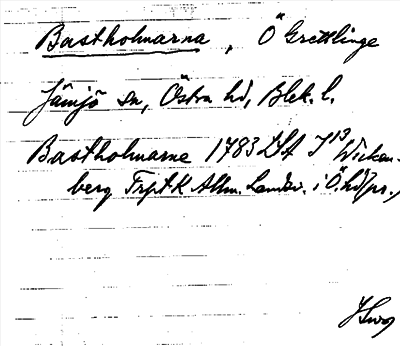 Bastholmarna, Ö Grettlinge
Jämjö sn, Östra hd, Blek. l.
Bastholmarne 1783 LSA I 13 Wicken-
berg Trpt K Allm. Landsv. i Ö. hd